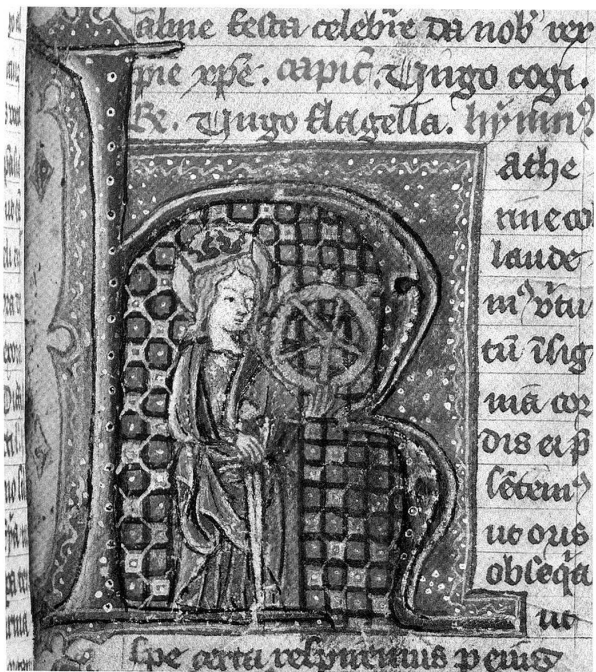 alme festa celebr̄e da nob' rex
pie xp̄e. capit̄. Virgo
R̷. Virgo flagella. hymn⁹
K athe
rine col
laude
m⁹ v̓tu
tū īsig
nia cor
dis et p̄
sētem⁹
ut oris
obseq̄a
ut
spe certa